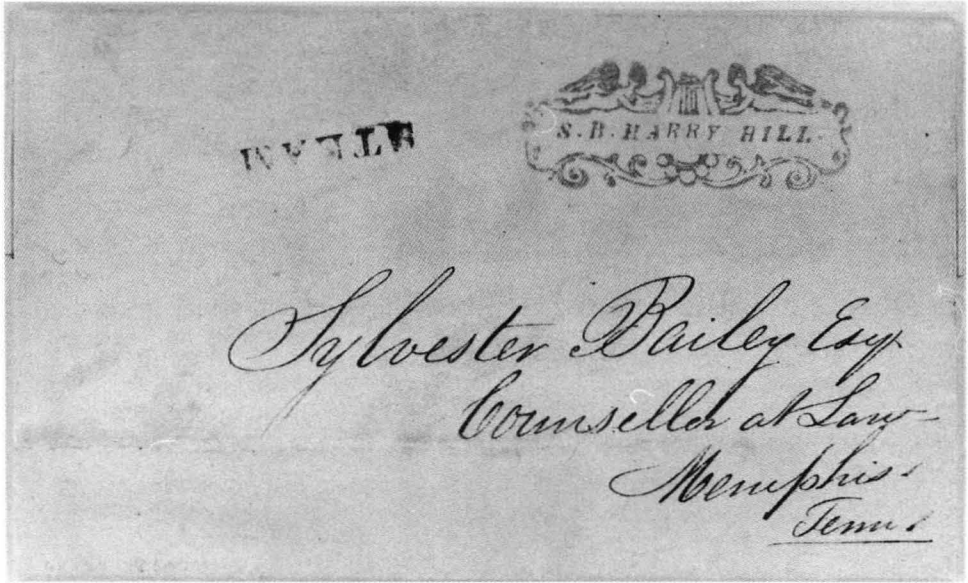 STEAM
S. B. HARRY HILL.
Sylvester Bailey Esqr
Counseller at Law
Memphis
Tenn.